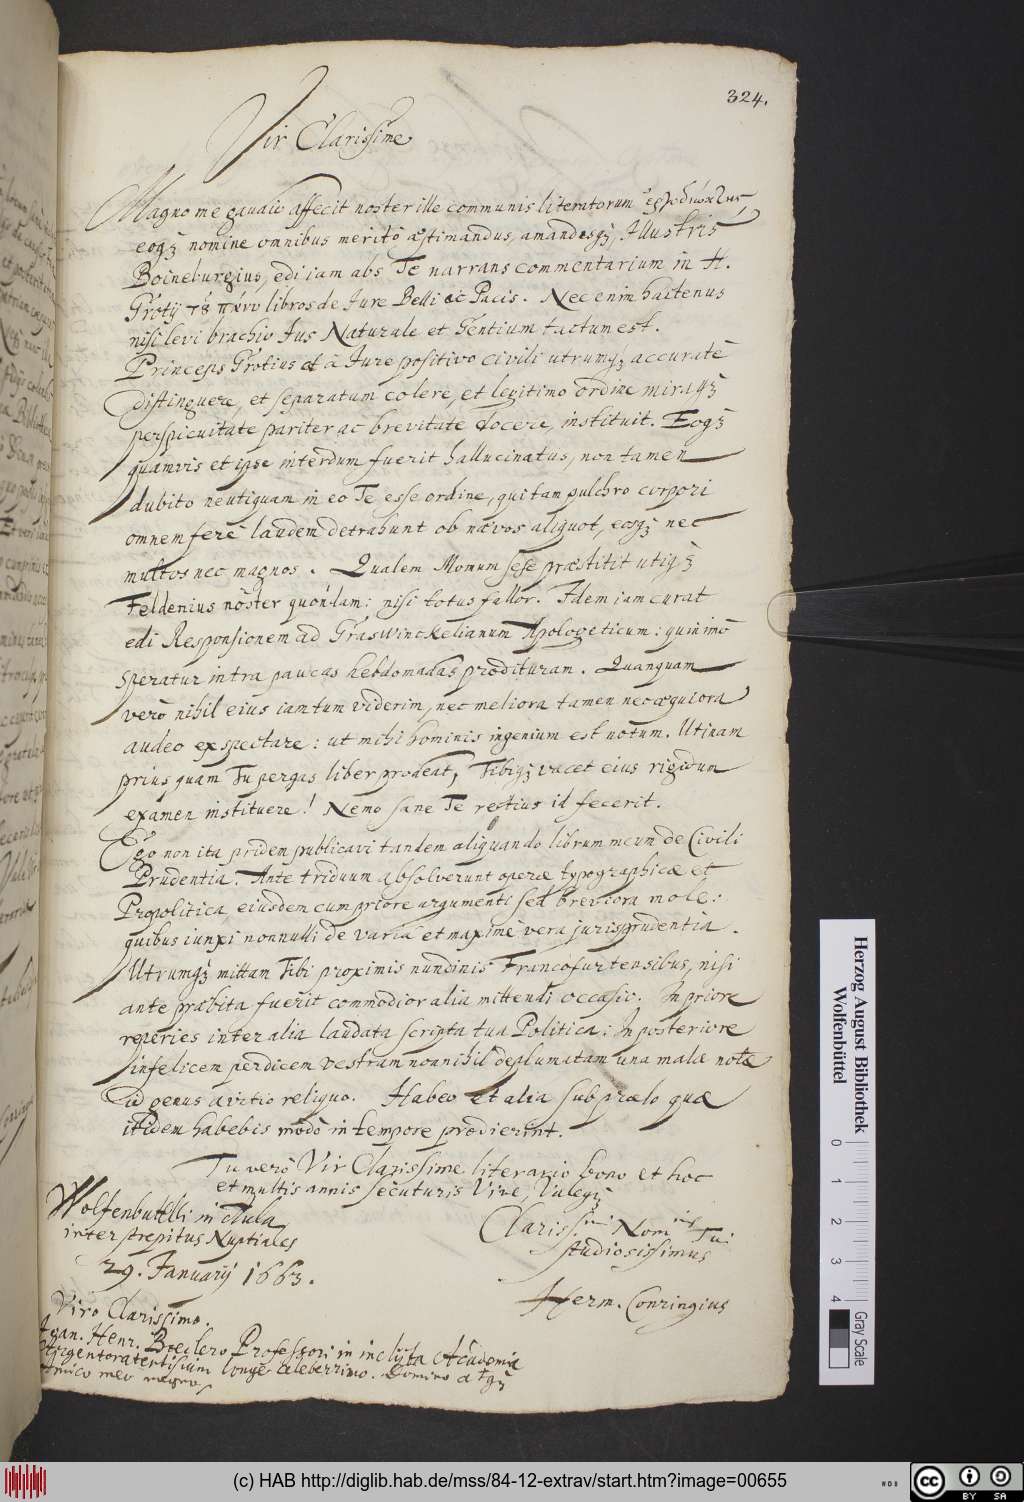 324.
Vir Clarissime
Magno me gaudio affecit noster ille communis literatorum ἐργοδιώκτης,
eoq; nomine omnibus meritò æstimandus, amandusq;, Illustris
Boineburgius, edi iam abs Te narrans commentarium in H.
Grotij τȣ πάνυ libros de Jure Belli ac Pacis. Nec enim hactenus
nisi levi brachio Jus Naturale et Gentium tactum est.
Princeps Grotius et à Jure positivo civili utrumq; accuratè
distinguere, et separatum colere, et legitimo ordine miraq;
perspicuitate pariter ac brevitate docere, instituit. Eoq;
quamvis et ipse interdum fuerit hallucinatus, non tamen
dubito neutiquam in eo Te esse ordine, qui tam pulchro corpori
omnem ferè laudem detrahunt ob nævos aliquot, eosq; nec
multos nec magnos. Qualem Momum sese præstitit utiq;
Feldenius noster quondam: nisi totus fallor. Idem iam curat
edi Responsionem ad Graswinckelianum Apologeticum: quin imò
speratur intra paucas hebdomadas prodituram. Quanquam
verò nihil eius iam tum viderim, nec meliora tamen nec æquiora
audeo exspectare: ut mihi hominis ingenium est notum. Utinam
prius quam Tu pergas liber prodeat, Tibiq; vacet eius rigidum
examen instituere! Nemo sane Te rectius id fecerit.
Ego non ita pridem publicavi tandem aliquando librum meum de Civili
Prudentia. Ante triduum absolverunt operæ typographicæ et
Propolitica, eiusdem cum priore argumenti sed breviora mole:
quibus iunxi nonnulli de varia et maximè vera jurisprudentia.
Utrumq; mittam Tibi proximis nundinis Francofurtensibus, nisi
ante præbita fuerit commodior alia mittendi occasio. In priore
reperies inter alia laudata scripta tua Politica: In posteriore
infelicem perdicem vestram nonnihil deplumatam una malæ notæ
id genus avitio reliquo. Habeo et alia sub prælo quæ
itidem habebis modò in tempore prodierint.
Tu verò Vir Clarissime literario bono et hoc
et multis annis secuturis Vive, Valeq;
Wolfenbutelli in Aula
inter strepitus Nuptiales
29. Januarij 1663.
Clariss.imi Nominis Tui
studiosissimus
Herm. Conringius
Viro Clarissimo.
Joan. Henr. Boeclero Professori in inclyta Academia
Argentoratensium longè celeberrimo. Domino atq;
amico meo magno
Herzog August Bibliothek
Wolfenbüttel
0 1 2 3 4
Gray Scale
(c) HAB http://diglib.hab.de/mss/84-12-extrav/start.htm?image=00655
WDB
cc BY SA